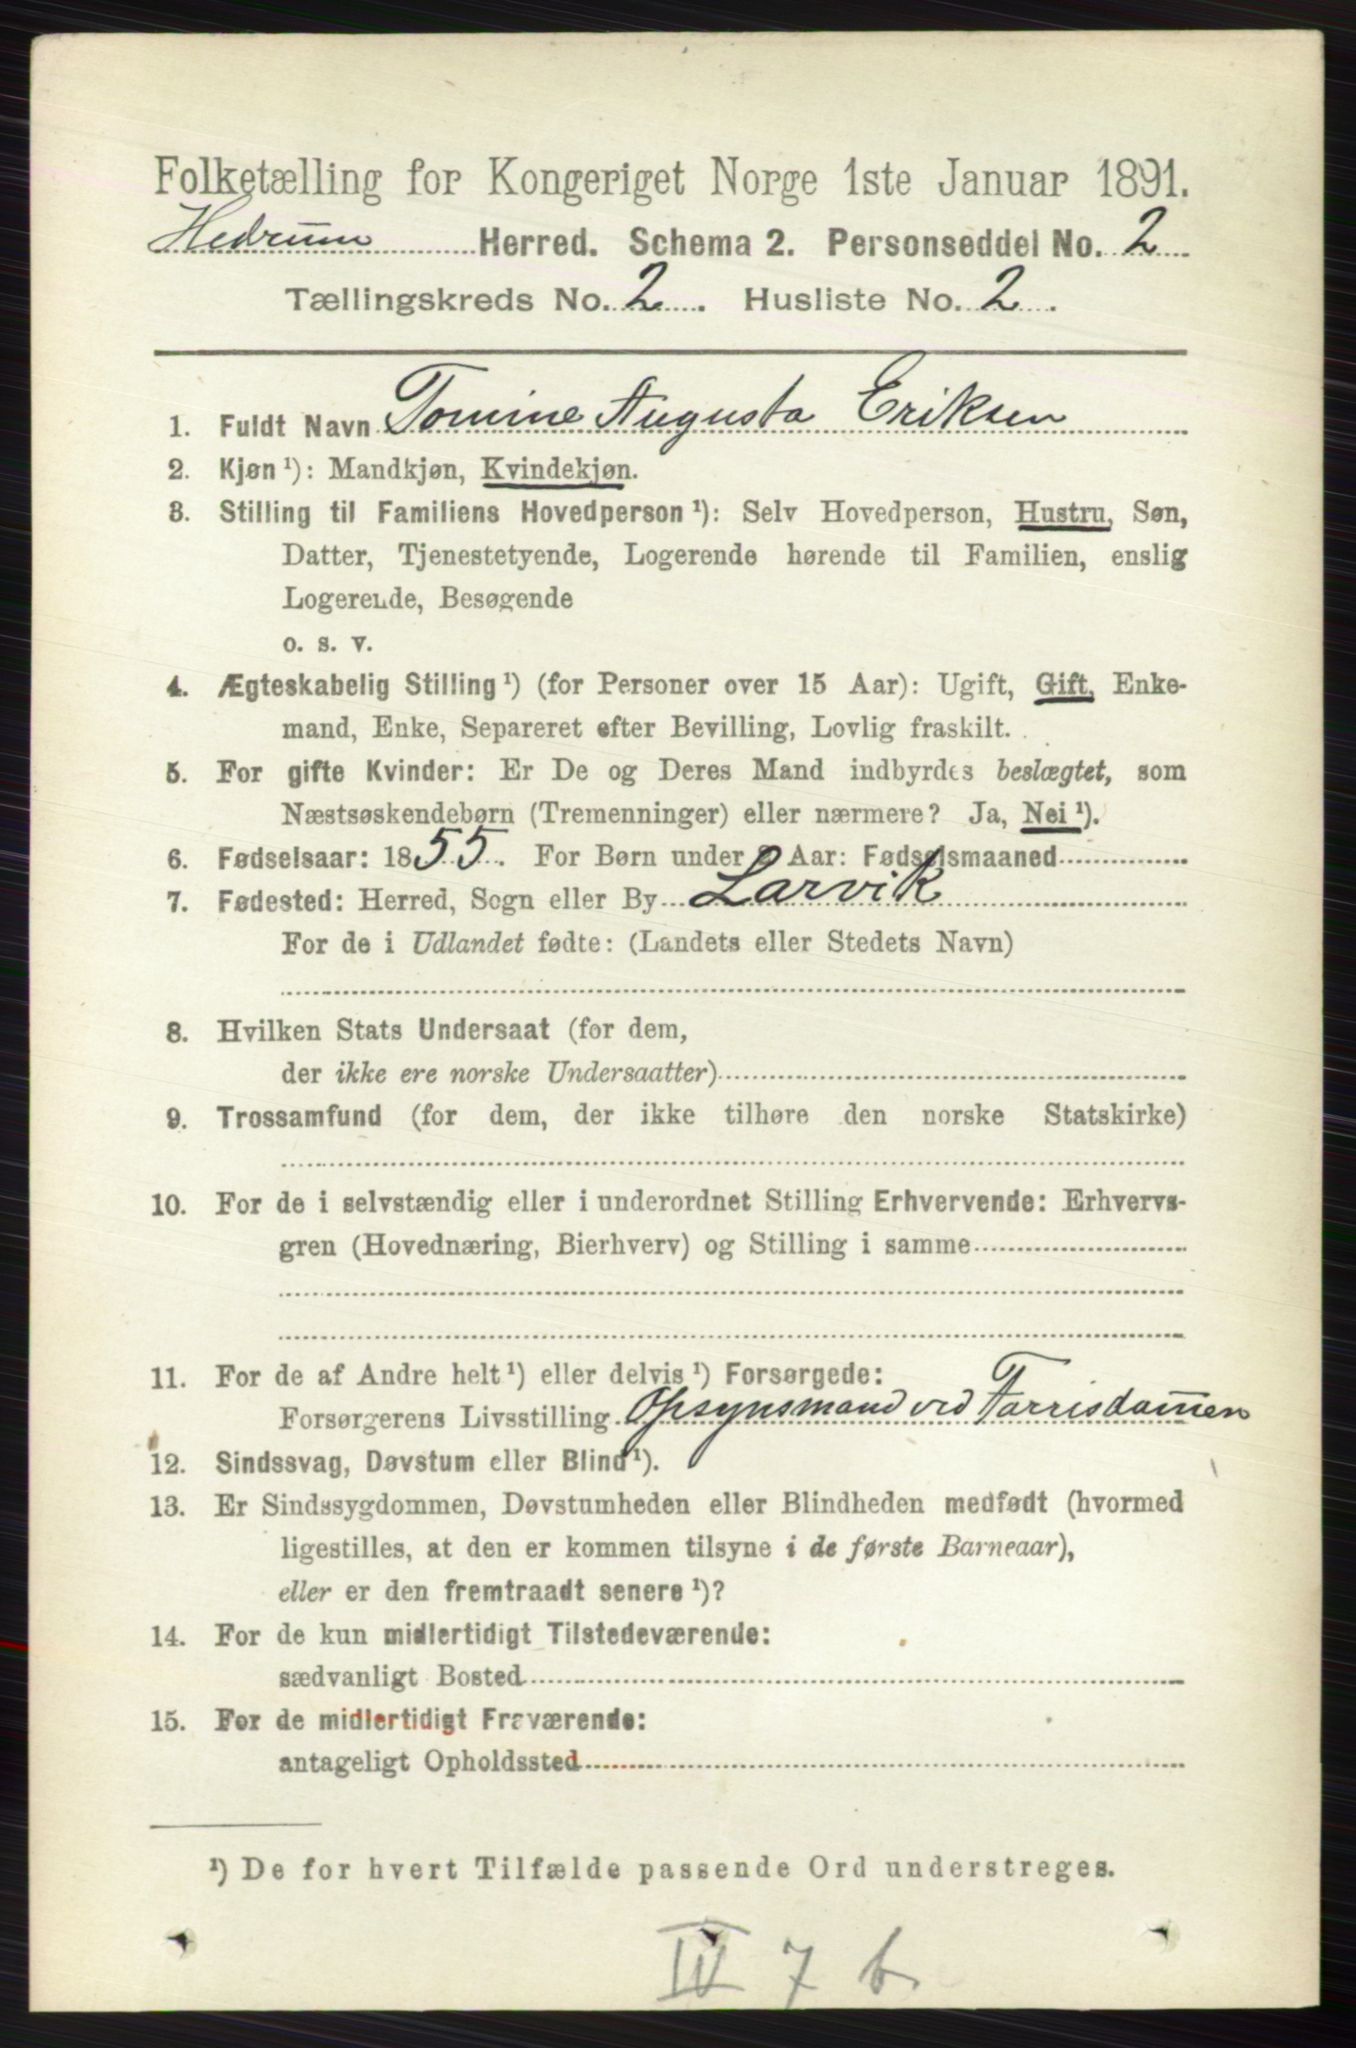 Folketælling for Kongeriget Norge 1ste Januar 1891.
Hedrum Herred. Schema 2. Personseddel No. 2
Tællingskreds No. 2. Husliste No. 2.
1. Fuldt Navn Tomine Augusta Eriksen
2. Kjøn ¹): Mandkjøn, Kvindekjøn.
3. Stilling til Familiens Hovedperson ¹): Selv Hovedperson, Hustru, Søn,
Datter, Tjenestetyende, Logerende hørende til Familien, enslig
Logerende, Besøgende
o. s. v.
4. Ægteskabelig Stilling ¹) (for Personer over 15 Aar): Ugift, Gift, Enke-
mand, Enke, Separeret efter Bevilling, Lovlig fraskilt.
5. For gifte Kvinder: Er De og Deres Mand indbyrdes beslægtet, som
Næstsøskendebørn (Tremenninger) eller nærmere? Ja, Nei ¹).
6. Fødselsaar: 1855. For Børn under 2 Aar: Fødselsmaaned
7. Fødested: Herred, Sogn eller By Larvik
For de i Udlandet fødte: (Landets eller Stedets Navn)
8. Hvilken Stats Undersaat (for dem,
der ikke ere norske Undersaatter)
9. Trossamfund (for dem, der ikke tilhøre den norske Statskirke)
10. For de i selvstændig eller i underordnet Stilling Erhvervende: Erhvervs-
gren (Hovednæring, Bierhverv) og Stilling i samme
11. For de af Andre helt ¹) eller delvis ¹) Forsørgede:
Forsørgerens Livsstilling Opsynsmand ved Farrisdammen
12. Sindssvag, Døvstum eller Blind ¹).
13. Er Sindssygdommen, Døvstumheden eller Blindheden medfødt (hvormed
ligestilles, at den er kommen tilsyne i de første Barneaar),
eller er den fremtraadt senere ¹)?
14. For de kun midlertidigt Tilstedeværende:
sædvanligt Bosted
15. For de midlertidigt Fraværende:
antageligt Opholdssted
¹) De for hvert Tilfælde passende Ord understreges.
IV 7 b